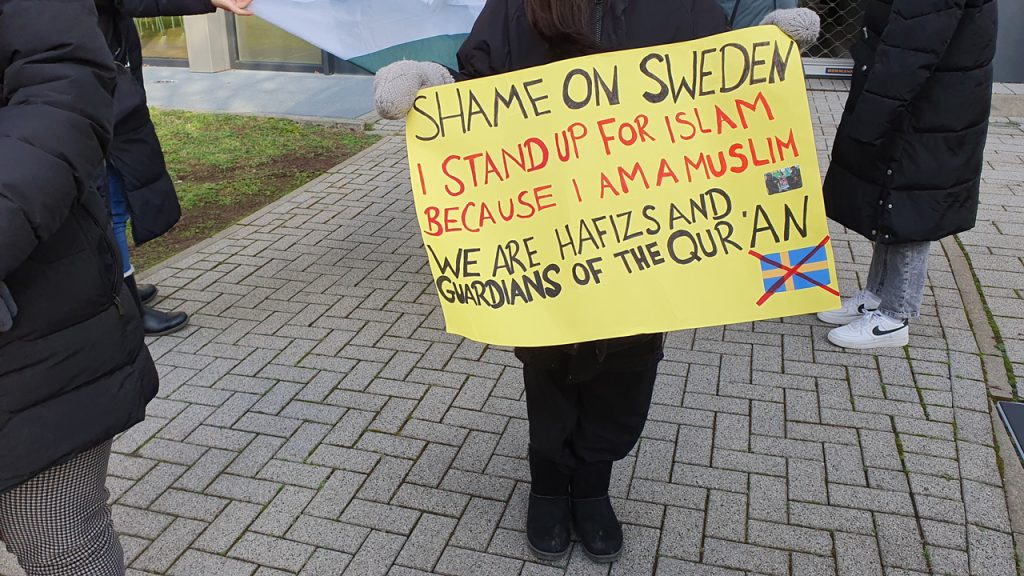 SHAME ON SWEDEN
I STAND UP FOR ISLAM
BECAUSE I AM A MUSLIM
WE ARE HAFIZS AND
GUARDIANS OF THE QUR'AN